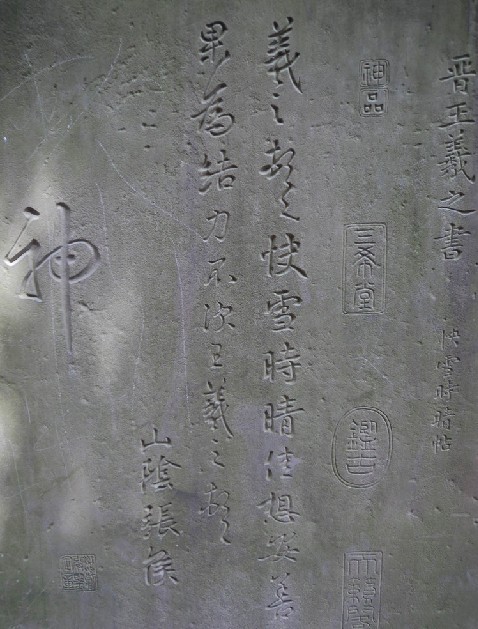 晋王羲之書 快雪時晴帖
神品
三希堂
鑑古
羲之頓首快雪時晴佳想安善
果為結力不次王羲之頓首
山陰張侯
神